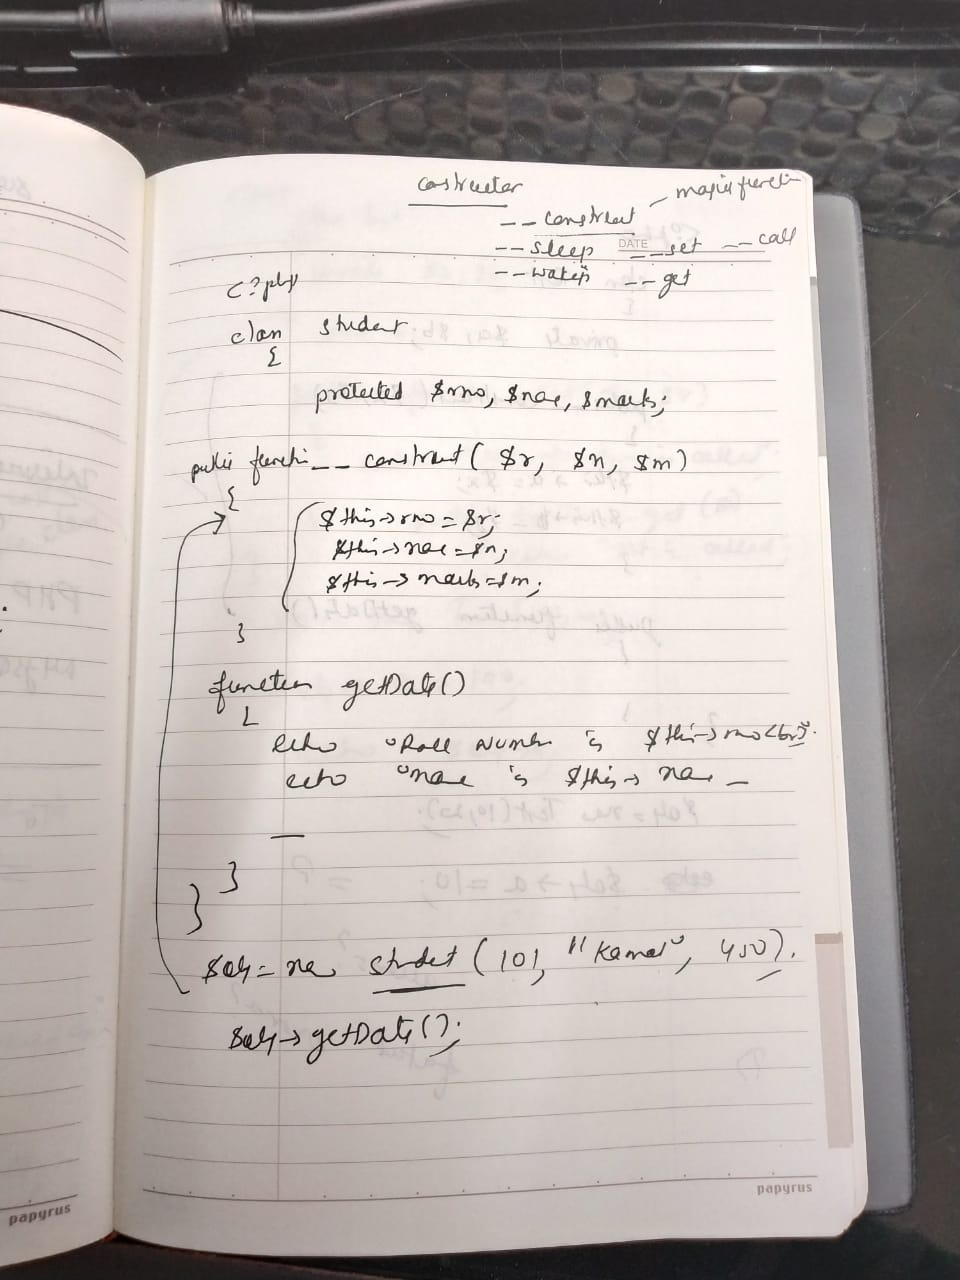 constructor
__ construct magic functi
__ sleep DATE __set __call
__ wakeup __get
<?php
class student
{
protected $rno, $name, $marks;
public functi__ construct ( $r, $n, $m)
{
$this->rno = $r;
$this->name = $n;
$this->marks = $m;
}
function getData()
{
echo "Roll Number is $this->rno<br>".
echo "name is $this->name _
—
}
}
$obj = new student (101, "Kamal", 450).
$obj->getData();
papyrus
papyrus